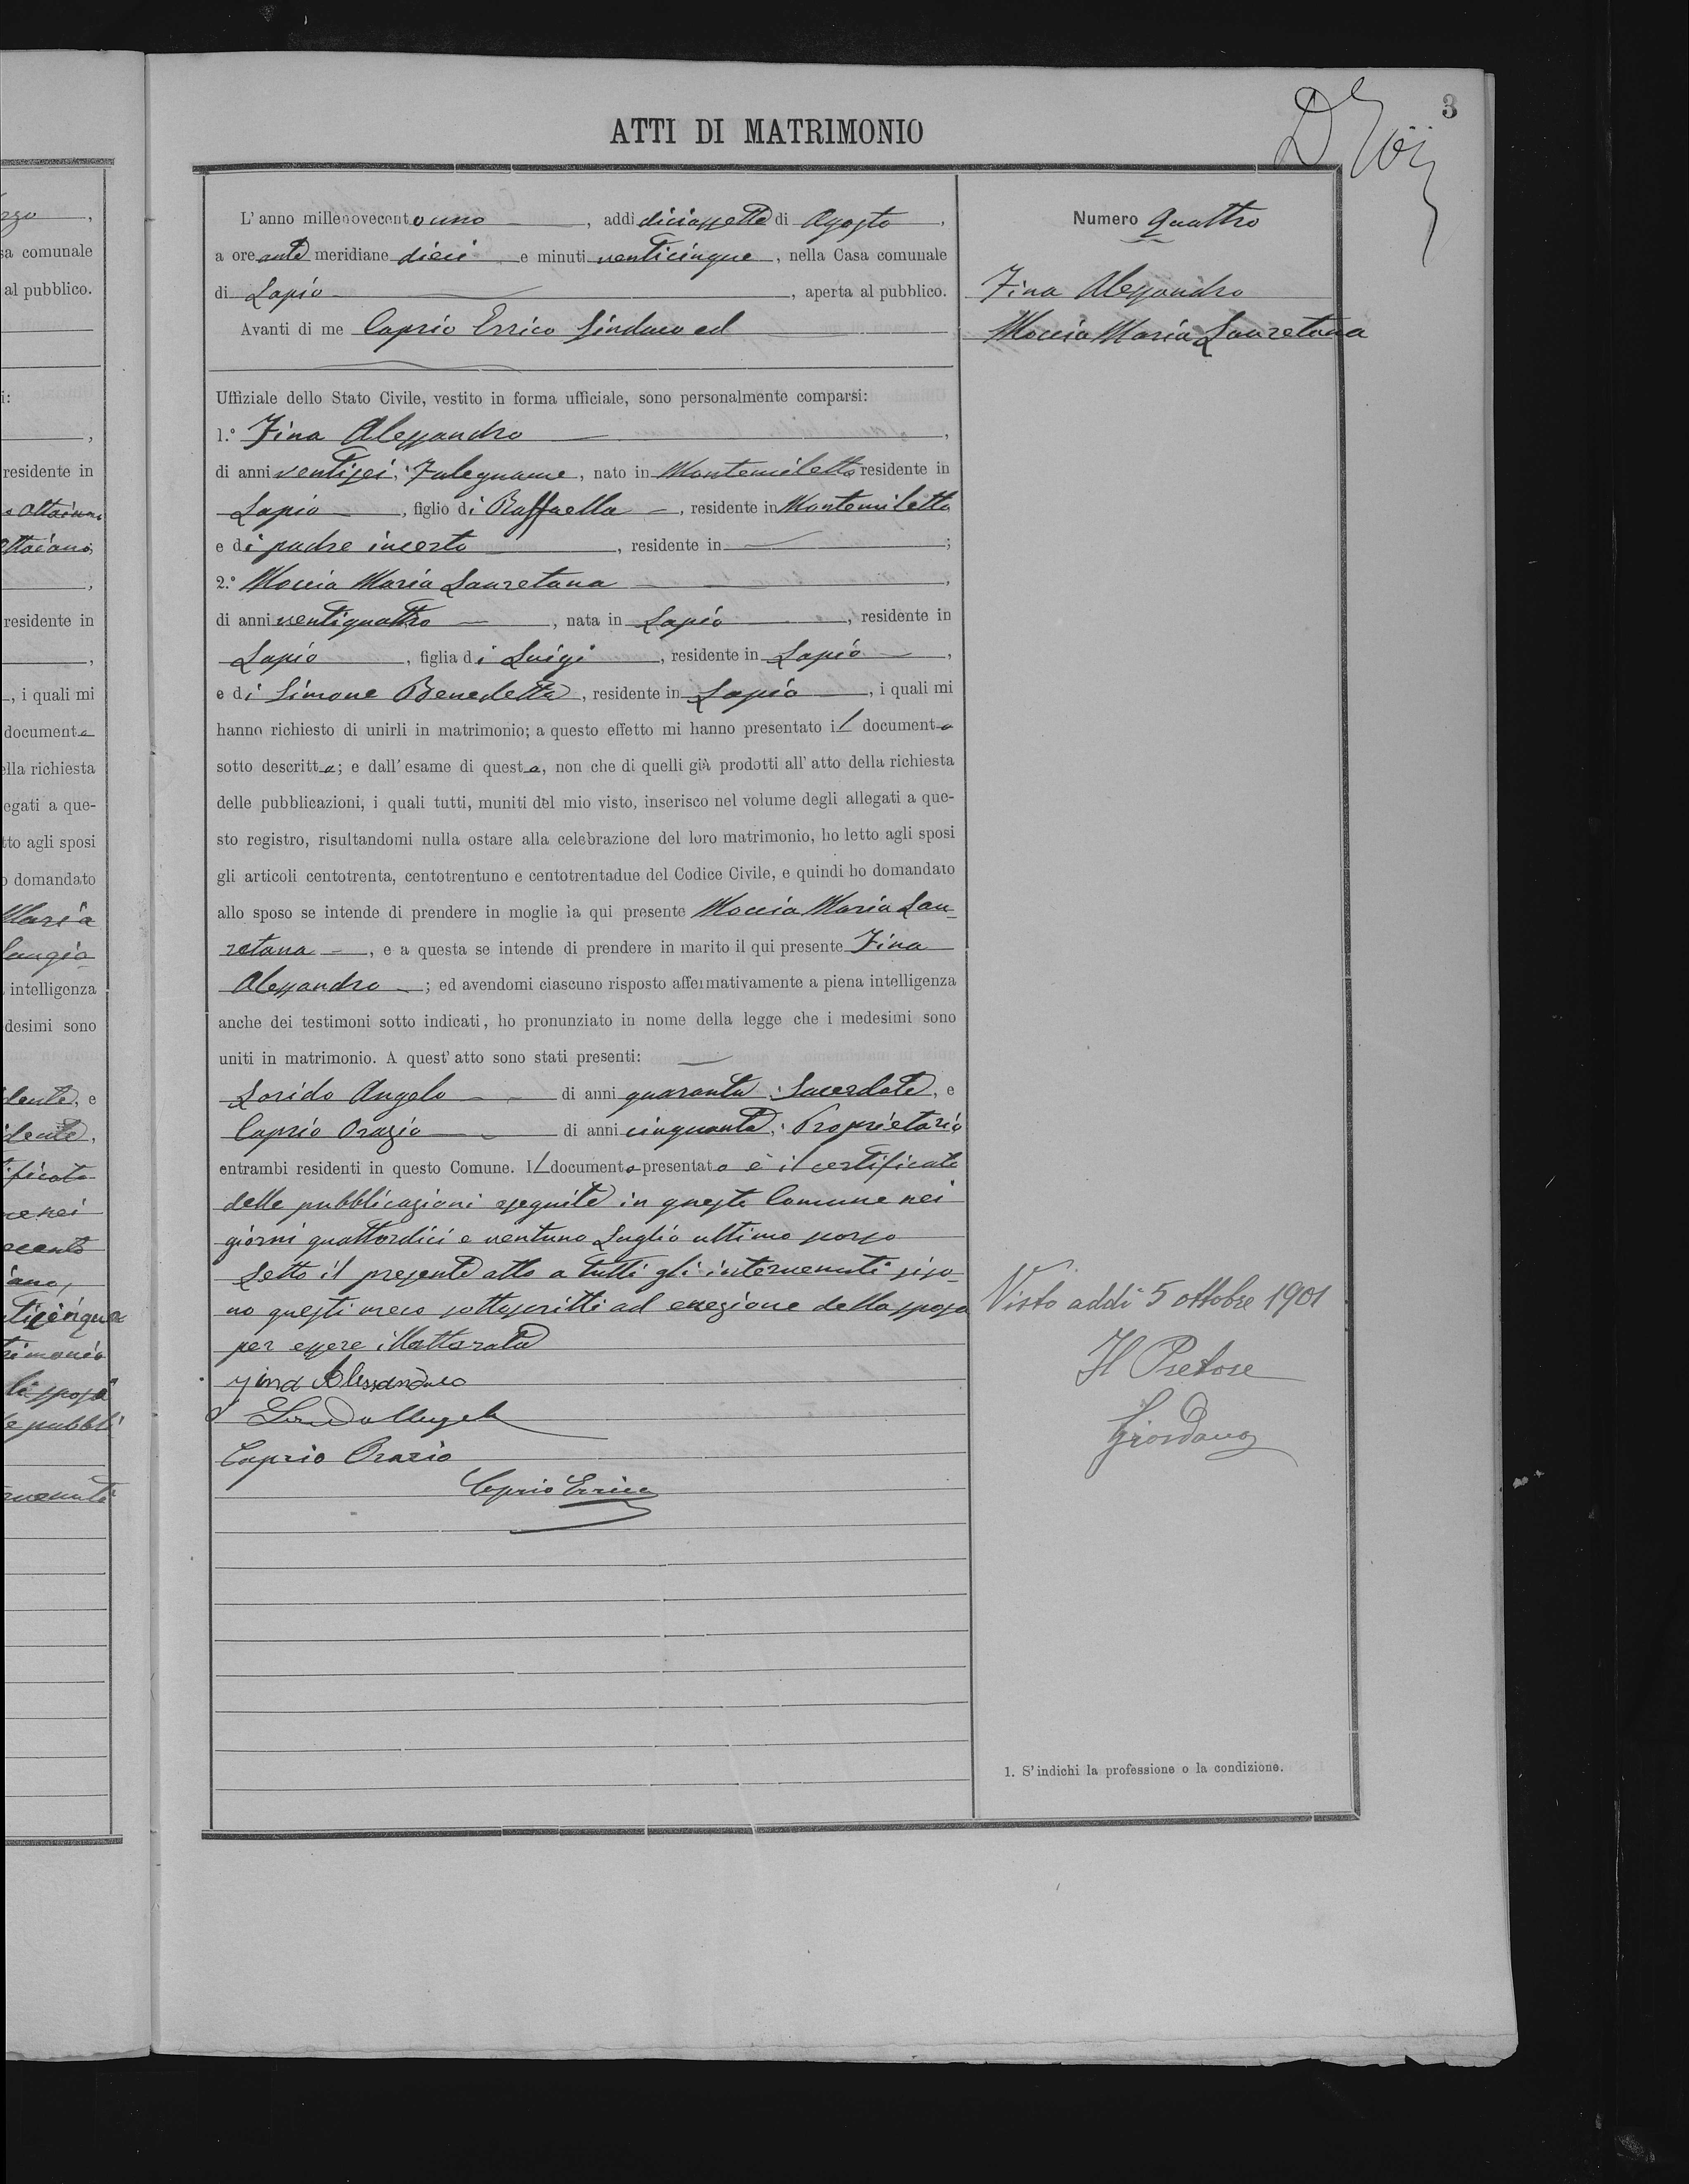 3
ATTI DI MATRIMONIO
L'anno millenovecento uno, addì diciassette di Agosto,
a ore ante meridiane dieci e minuti venticinque, nella Casa comunale
di Lapio, aperta al pubblico.
Avanti di me Caprio Errico Sindaco ed
Uffiziale dello Stato Civile, vestito in forma ufficiale, sono personalmente comparsi:
1.° Fina Alessandro,
di anni ventisei, Falegname, nato in Montemiletto residente in
Lapio, figlio di Raffaella, residente in Montemiletto
e di padre incerto, residente in ;
2.° Moccia Maria Lauretana,
di anni ventiquattro, nata in Lapio, residente in
Lapio, figlia di Luigi, residente in Lapio,
e di Simone Benedetta, residente in Lapio, i quali mi
hanno richiesto di unirli in matrimonio; a questo effetto mi hanno presentato il documento
sotto descritto; e dall'esame di questo, non che di quelli già prodotti all'atto della richiesta
delle pubblicazioni, i quali tutti, muniti del mio visto, inserisco nel volume degli allegati a que-
sto registro, risultandomi nulla ostare alla celebrazione del loro matrimonio, ho letto agli sposi
gli articoli centotrenta, centotrentuno e centotrentadue del Codice Civile, e quindi ho domandato
allo sposo se intende di prendere in moglie la qui presente Moccia Maria Lau-
retana, e a questa se intende di prendere in marito il qui presente Fina
Alessandro; ed avendomi ciascuno risposto affermativamente a piena intelligenza
anche dei testimoni sotto indicati, ho pronunziato in nome della legge che i medesimi sono
uniti in matrimonio. A quest'atto sono stati presenti:
Lorido Angelo di anni quaranta, Sacerdote, e
Caprio Orazio di anni cinquanta, Proprietario
entrambi residenti in questo Comune. Il documento presentato è il certificato
delle pubblicazioni eseguite in questo Comune nei
giorni quattordici e ventuno Luglio ultimo scorso
Letto il presente atto a tutti gli intervenuti si so-
no questi meco sottoscritti ad eccezione della sposa
per essere illetterata
Fina Alessandro
Caprio Orazio
Caprio Errico
Numero Quattro
Fina Alessandro
Moccia Maria Lauretana
Visto addì 5 ottobre 1901
Il Pretore
Giordano
1. S'indichi la professione o la condizione.